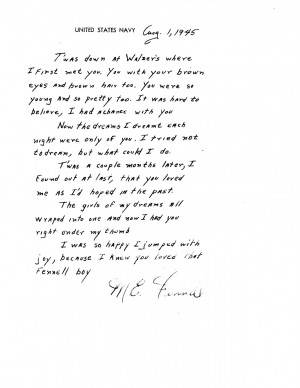 UNITED STATES NAVY Aug. 1, 1945
Twas down at Walzer's where
I first met you. You with your brown
eyes and brown hair too. You were so
young and so pretty too. It was hard to
believe, I had achance with you
Now the dreams I dreamt each
night were only of you. I tried not
to dream, but what could I do.
Twas a couple months later, I
found out at last, that you loved
me as I'd hoped in the past.
The girls of my dreams all
wraped into one and now I had you
right under my thumb
I was so happy I jumped with
joy, because I knew you loved that
Fennell boy
M.E. Fennell